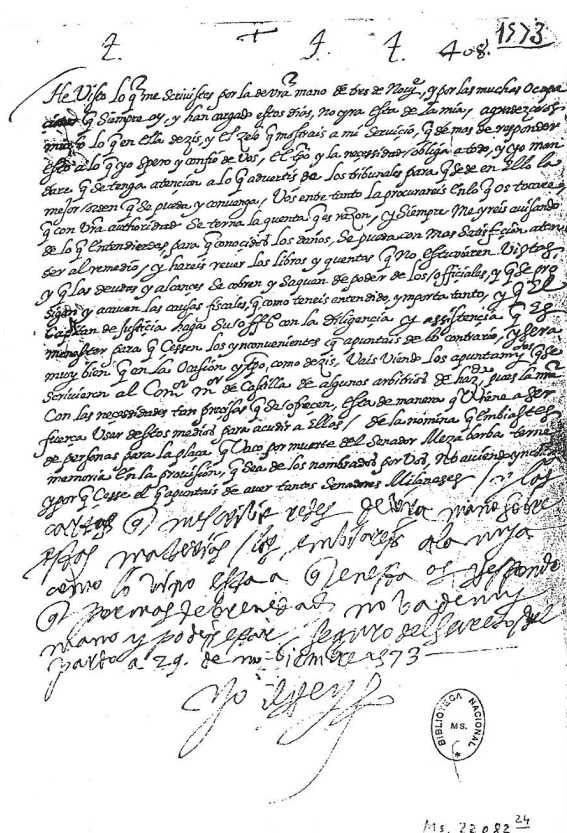 1573
408.
He Visto lo q̃ me scrivistes por la de vrã mano de tres de Novᵉ, y por las muchas Ocupa
ciones q̃ siempre ay, y han cargado estos dias, no yra esta de la mia, agradezcoos
mucho lo q̃ en ella dezis, y el zelo q̃ mostrais a mi servicio, q̃ demas de responder
esto a lo q̃ yo spero y confio de Vos, el tp̃o y la necessidad obliga a todo, y yo man
dare q̃ se tenga atencion a lo q̃ advertis de los tribunales para q̃ se de en ello la
mejor orden q̃ se pueda y convenga, Vos entre tanto la procurareis en lo q̃ os tocare, y
q̃ con vrã authoridad se terna la quenta q̃ es razon, y siempre me yreis avisando
de lo q̃ entendieredes, para q̃ conocidos los daños, se pueda con mas satisfacion aten
der al remedio, y hareis rever los libros y quentas q̃ no estuvieren vistas,
y q̃ las deudas y alcances se cobren y saquen de poder de los officiales, y q̃ se pro
sigan y acaven las causas fiscales, q̃ como teneis entendido, ymporta tanto, y q̃ el
Capitan de justicia haga su offº con la diligencia y assistencia q̃ es
menester para q̃ cessen los ynconvenientes q̃ apuntais de lo contrario, y sera
muy bien q̃ en la ocasion y tp̃o, como dezis, vais viendo los apuntamyº q̃ se
scrivieron al Comºʳ mºʳ de Castilla de algunos arbitrios de hazᵈᵃ, pues la mia
con las necessidades tan precisas q̃ se ofrecen, esta de manera q̃ viene a ser
fuerça usar destos medios para acudir a ellos / de la nomina q̃ embiastes
de personas para la plaça q̃ vaco por muerte del Senador Mezabarba terne
memoria en la provision, q̃ sea de los nombrados por Vos, no aviendo
y por q̃ cesse el q̃ apuntais de aver tantos Senadores Milaneses / y las
cartas q̃ me escrivieredes de vra mano sobre
estas materias las embiareis a la mia
como lo vino esta a q̃ en esta os respondo
q̃ por mas brevedad no va de my
mano y podeys estar seguro del secreto, del
pardo a 29. de noviembre 1573
Yo el Rey
BIBLIOTECA NACIONAL
MS.
Ms. 22082 24